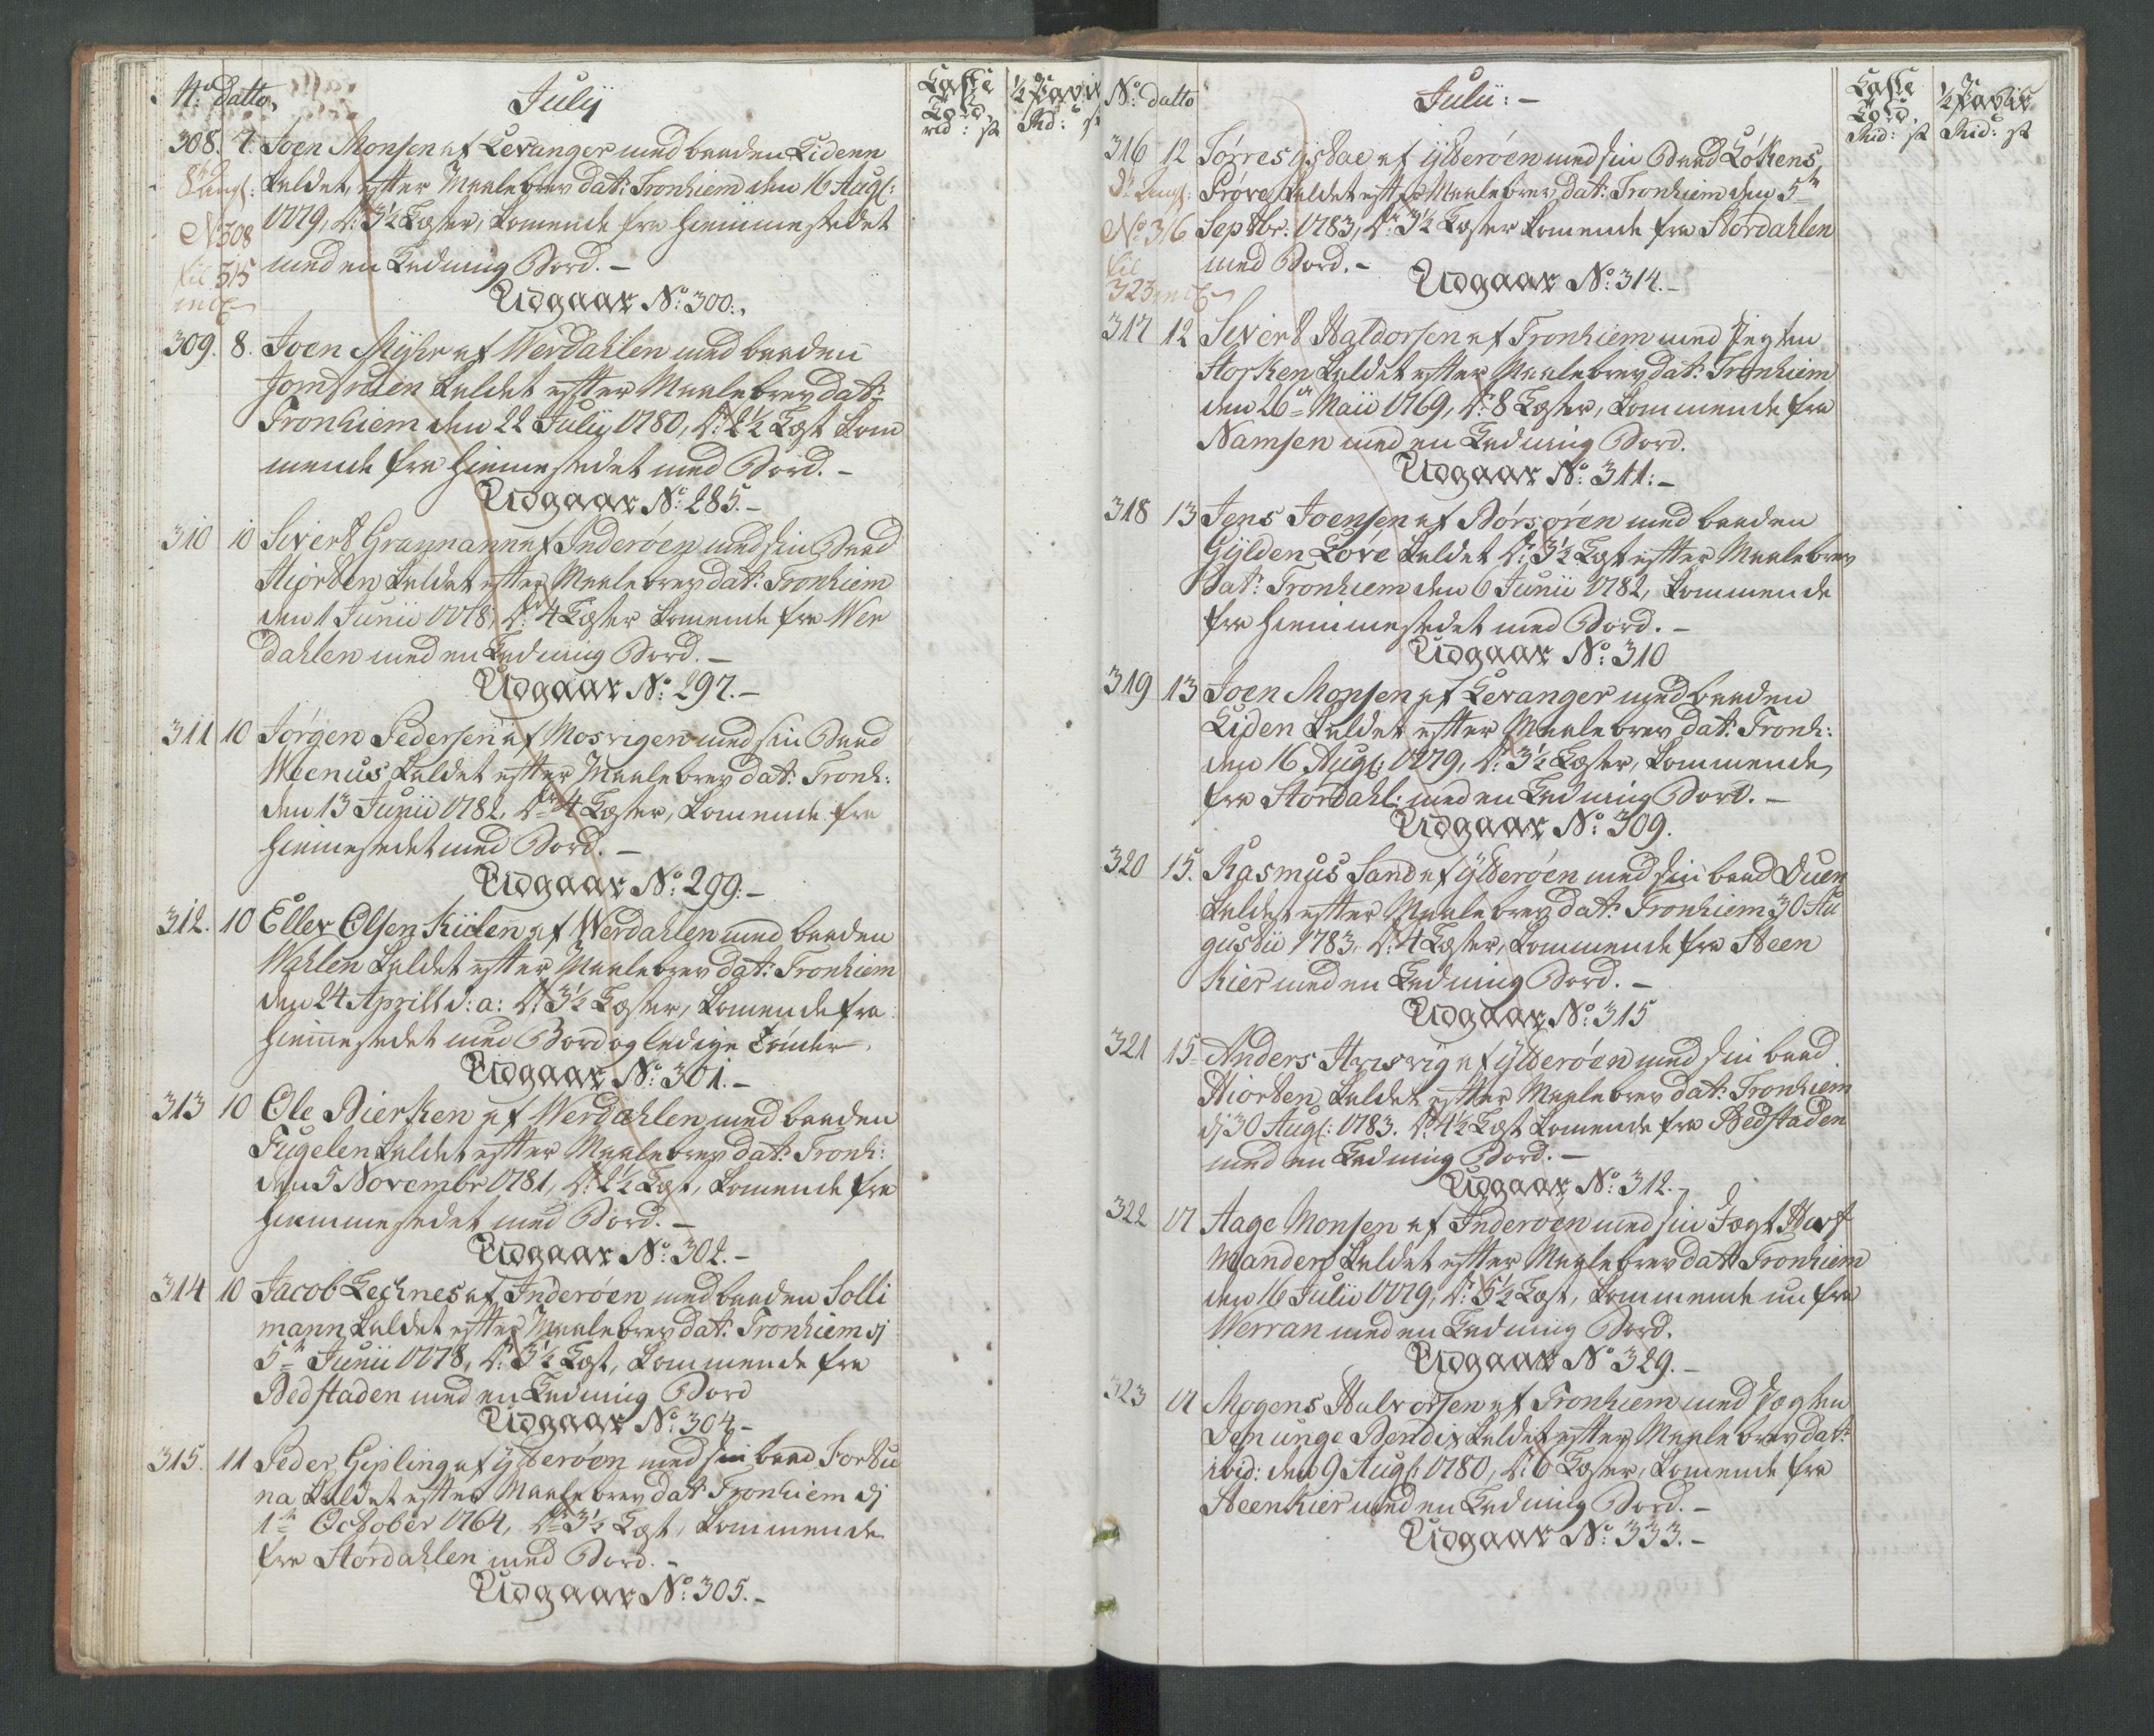 No: datto,
Julÿ
Casse Told
rd: s
½ P
Rd: s
308. 7. Joen Monsen af Levanger med baaden Lidenn
kaldet, efter Maalebrev dat: Tronhiem den 16 Augs:
1779, Dr: 3½ Læster, komende fra hiemmestedet
med en Ladning Bord. –
N 308
til 315
incl
Udgaar No: 300.
309. 8. Joen Myhr af Werdahlen med baaden
Jomfruen kaldet efter Maalebrev dat:
Tronhiem den 22 Julÿ 1780, Dr: 2½ Læst kom
mende fra hiemmestedet med Bord. –
Udgaar No: 285. –
310 10 Sivert Granmann af Inderöen med sin Baad
Hiorten kaldet efter Maalebrev dat: Tronhiem
den 1 Junii 1778, Dr: 4 Læster komende fra Wer
dahlen med en Ladning Bord. –
Udgaar No: 297. –
311 10 Jörgen Pedersen af Mosvigen med sin Baad
Weenus kaldet efter Maalebrev dat: Tronh:
den 13 Junii 1782, Dr 4 Læster, komende fra
hiemmestedet med Bord. –
Udgaar No: 299. –
312. 10 Eller Olsen Kiilen af Werdahlen med baaden
Wahlen kaldet efter Maalebrev dat: Tronhiem
den 24 Aprill d: a: Dr: 3½ Læster, komende fra
hiemmestedet med Bord og ledige Tönder.
Udgaar No: 301. –
313 10 Ole Bierken af Werdahlen med baaden
Fugelen kaldet efter Maalebrev dat: Tronh:
den 5 Novembr 1781, Dr: 2½ Læst, komende fra
hiemmestedet med Bord. –
Udgaar No: 302. –
314 10 Jacob Lechnes af Inderöen med baaden Solli
mann kaldet efter Maalebrev dat: Tronhiem dj
5te Junii 1778, Dr: 3½ Læst, kommende fra
Bedstaden med en Ladning Bord
Udgaar No: 304 –
315. 11 Peder Gipling af Ytteröen med sin baad Fortu
na kaldet efter Maalebrev dat: Tronhiem dj
1te October 1764, Dr 3½ Læst, kommende
fra Stördahlen med Bord. –
Udgaar No: 305. –
No: datto
Julii: –
Casse Told.
Rid: s
½ P
Rid: s
316 12 Törres af Ytteröen med sin Baad Lökens
Pröve kaldet efter Maalebrev dat: Tronhiem den 5te
Septbr: 1783, Dr 3½ Læster komende fra Stördahlen
med Bord. –
No 316
til
323 incl
Udgaar No: 314. –
317 12 Sivert Haldorsen af Tronhiem med Jegten
Storken kaldet efter Maalebrev dat: Tronhiem
den 26de Maii 1769, Dr: 8 Læster, kommende fra
Namsen med en Ladning Bord.
Udgaar No: 311: –
318 13 Jens Joensen af Börsören med baaden
Gÿlden Löve kaldet Dr: 3½ Læst efter Maalebrev
dat: Tronhiem den 6 Junii 1782, kommende
fra hiemmestedet med Bord. –
Udgaar No: 310
319 13 Joen Monsen af Levanger med baaden
Liden kaldet efter Maalebrev dat: Tronh:
den 16 Augs: 1779, Dr: 3½ Læster, kommende
fra Stördahl: med en Ladning Bord. –
Udgaar No: 309.
320 15. Rasmus Sand af Ytteröen med sin baad Duen
kaldet efter Maalebrev dat: Tronhiem 30 Au
gustii 1783, Dr: 4 Læster, kommende fra Steen
kier med en Ladning Bord. –
Udgaar No: 315
321 15 Anders af Ytteröen med sin baad
Hiorten kaldet efter Maalebrev dat: Tronhiem
dj 30 Augs: 1783. Dr: 4½ Læst komende fra Bedstaden
med en Ladning Bord. –
Udgaar No: 312. –
322 17 Aage Monsen af Inderöen med sin Jægt Haf
Manden kaldet efter Maalebrev dat: Tronhiem
den 16 Julii 1779, Dr: 5½ Læst, kommende nu fra
Werran med en Ladning Bord.
Udgaar No 329. –
323 17 Mogens Halvorsen af Tronhiem med Jægten
Den unge Bendix kaldet efter Maalebrev dat:
ibid: den 9 Augs: 1780, Dr: 6 Læster, komende fra
Steenkier med en Ladning Bord. –
Udgaar No: 333. –